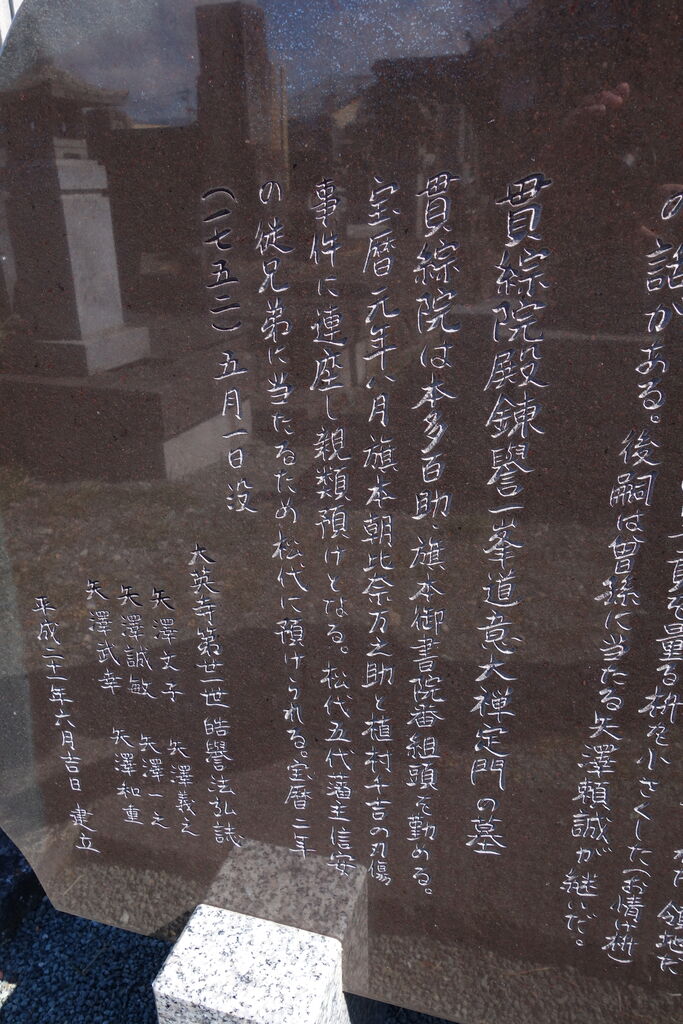 を量る枡を小さくした「お情け枡」
の話がある。後嗣は曽孫に当たる矢澤頼誠が継いだ。
貫綜院殿錬誉一峯道意大禅定門の墓
貫綜院は本多百助・旗本御書院番組頭を勤める。
宝暦元年八月旗本朝比奈万之助と植村千吉の刃傷
事件に連座し親類預けとなる。松代五代藩主信安
の従兄弟に当たるため松代に預けられる。宝暦二年
(一七五二)五月一日没
大英寺第廿一世 皓譽法弘誌
矢澤文子 矢澤義之
矢澤誠敏 矢澤一之
矢澤武幸 矢澤和重
平成二十一年六月吉日 建立